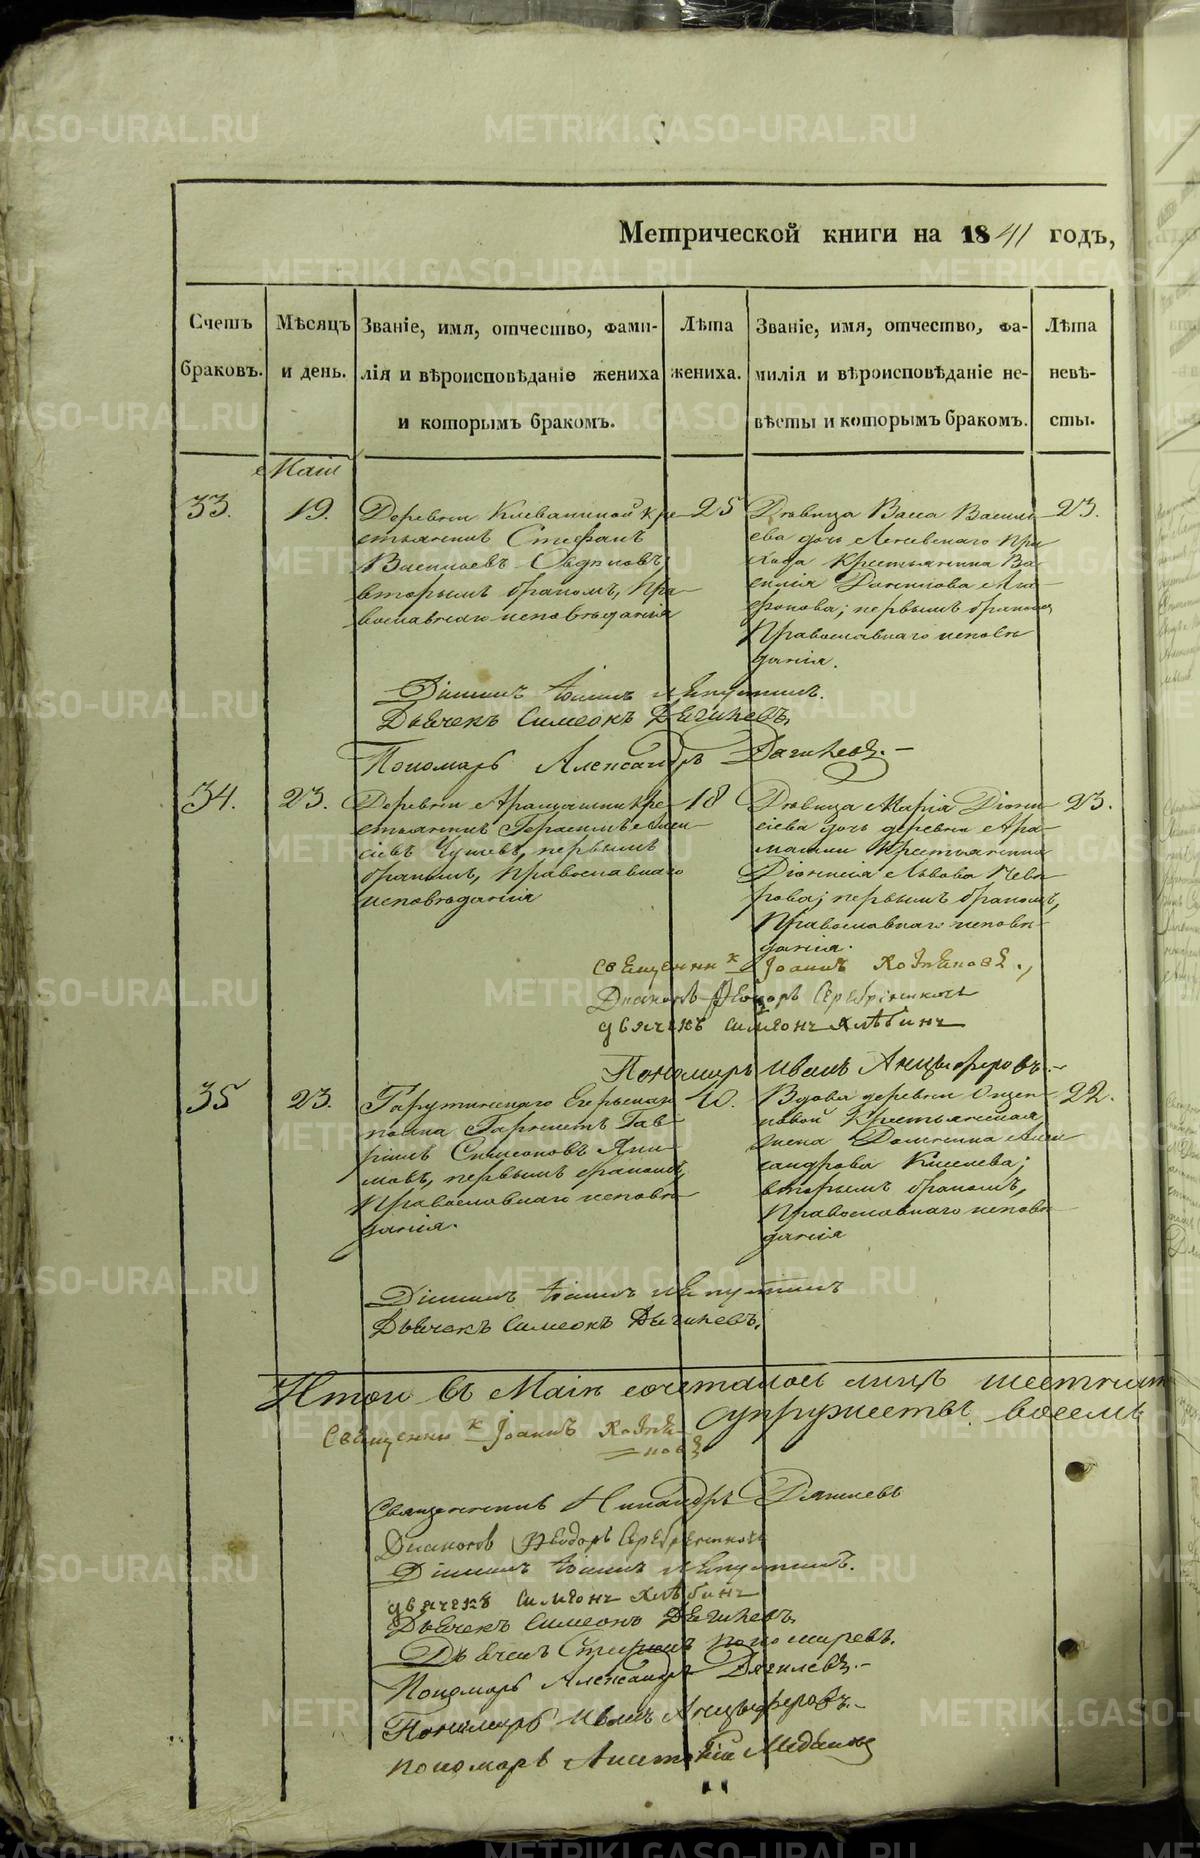 Метрической книги на 1841 годъ,
Счетъ браковъ.
Мѣсяцъ и день.
Званіе, имя, отчество, фамилія и вѣроисповѣданіе жениха и которымъ бракомъ.
Лѣта жениха.
Званіе, имя, отчество, фамилія и вѣроисповѣданіе невѣсты и которымъ бракомъ.
Лѣта невѣсты.
Маія
33.
19.
Деревни Клевакиной кре-
стьянинъ Стефанъ
Васильевъ
вторымъ бракомъ, Пра-
вославнаго исповѣданія
25
Дѣвица Васса Василь-
ева дочь Леневскаго При-
хода Крестьянина Ва-
силія
первымъ бракомъ
Православнаго исповѣ
данія.
23.
Діаконъ Іоаннъ
Дьячекъ Симеонъ Дягилевъ
Пономарь Александръ Дягилевъ.
34.
23.
Деревни Арамашки Кре-
стьянинъ Герасимъ Алек-
сіевъ первымъ
бракомъ, Православнаго
исповѣданія
18
Дѣвица Марія Діони-
сіева дочь деревни Ара-
машки Крестьянина
Діонисія Львова
первымъ бракомъ,
Православнаго исповѣ-
данія.
23.
Священникъ Іоаннъ
Діаконъ Ѳеодоръ Серебренниковъ
дьячекъ Симеонъ Хлѣбинъ
Пономарь Иванъ Анцыферовъ.
35
23.
Тарутинскаго Егерскаго
полка Гав-
ріилъ Симеоновъ
первымъ бракомъ,
Православнаго исповѣ
данія.
Вдова деревни
Крестьянская
жена Домникіа Алек
сандрова Киселева;
вторымъ бракомъ,
Православнаго исповѣ
данія
22.
Діаконъ Іоаннъ
Дьячекъ Симеонъ Дягилевъ.
Итого въ Маіѣ сочеталось лицъ
супружествъ восемь
Священникъ Іоаннъ
Священникъ Никандръ
Діаконъ Ѳеодоръ Серебренниковъ
Діаконъ Іоаннъ
дьячекъ Симеонъ Хлѣбинъ
Дьячекъ Симеонъ Дягилевъ.
Дьячекъ Пономаревъ.
Пономарь Александръ Дягилевъ.
Пономарь Иванъ Анцыферовъ.
пономарь
METRIKI.GASO-URAL.RU